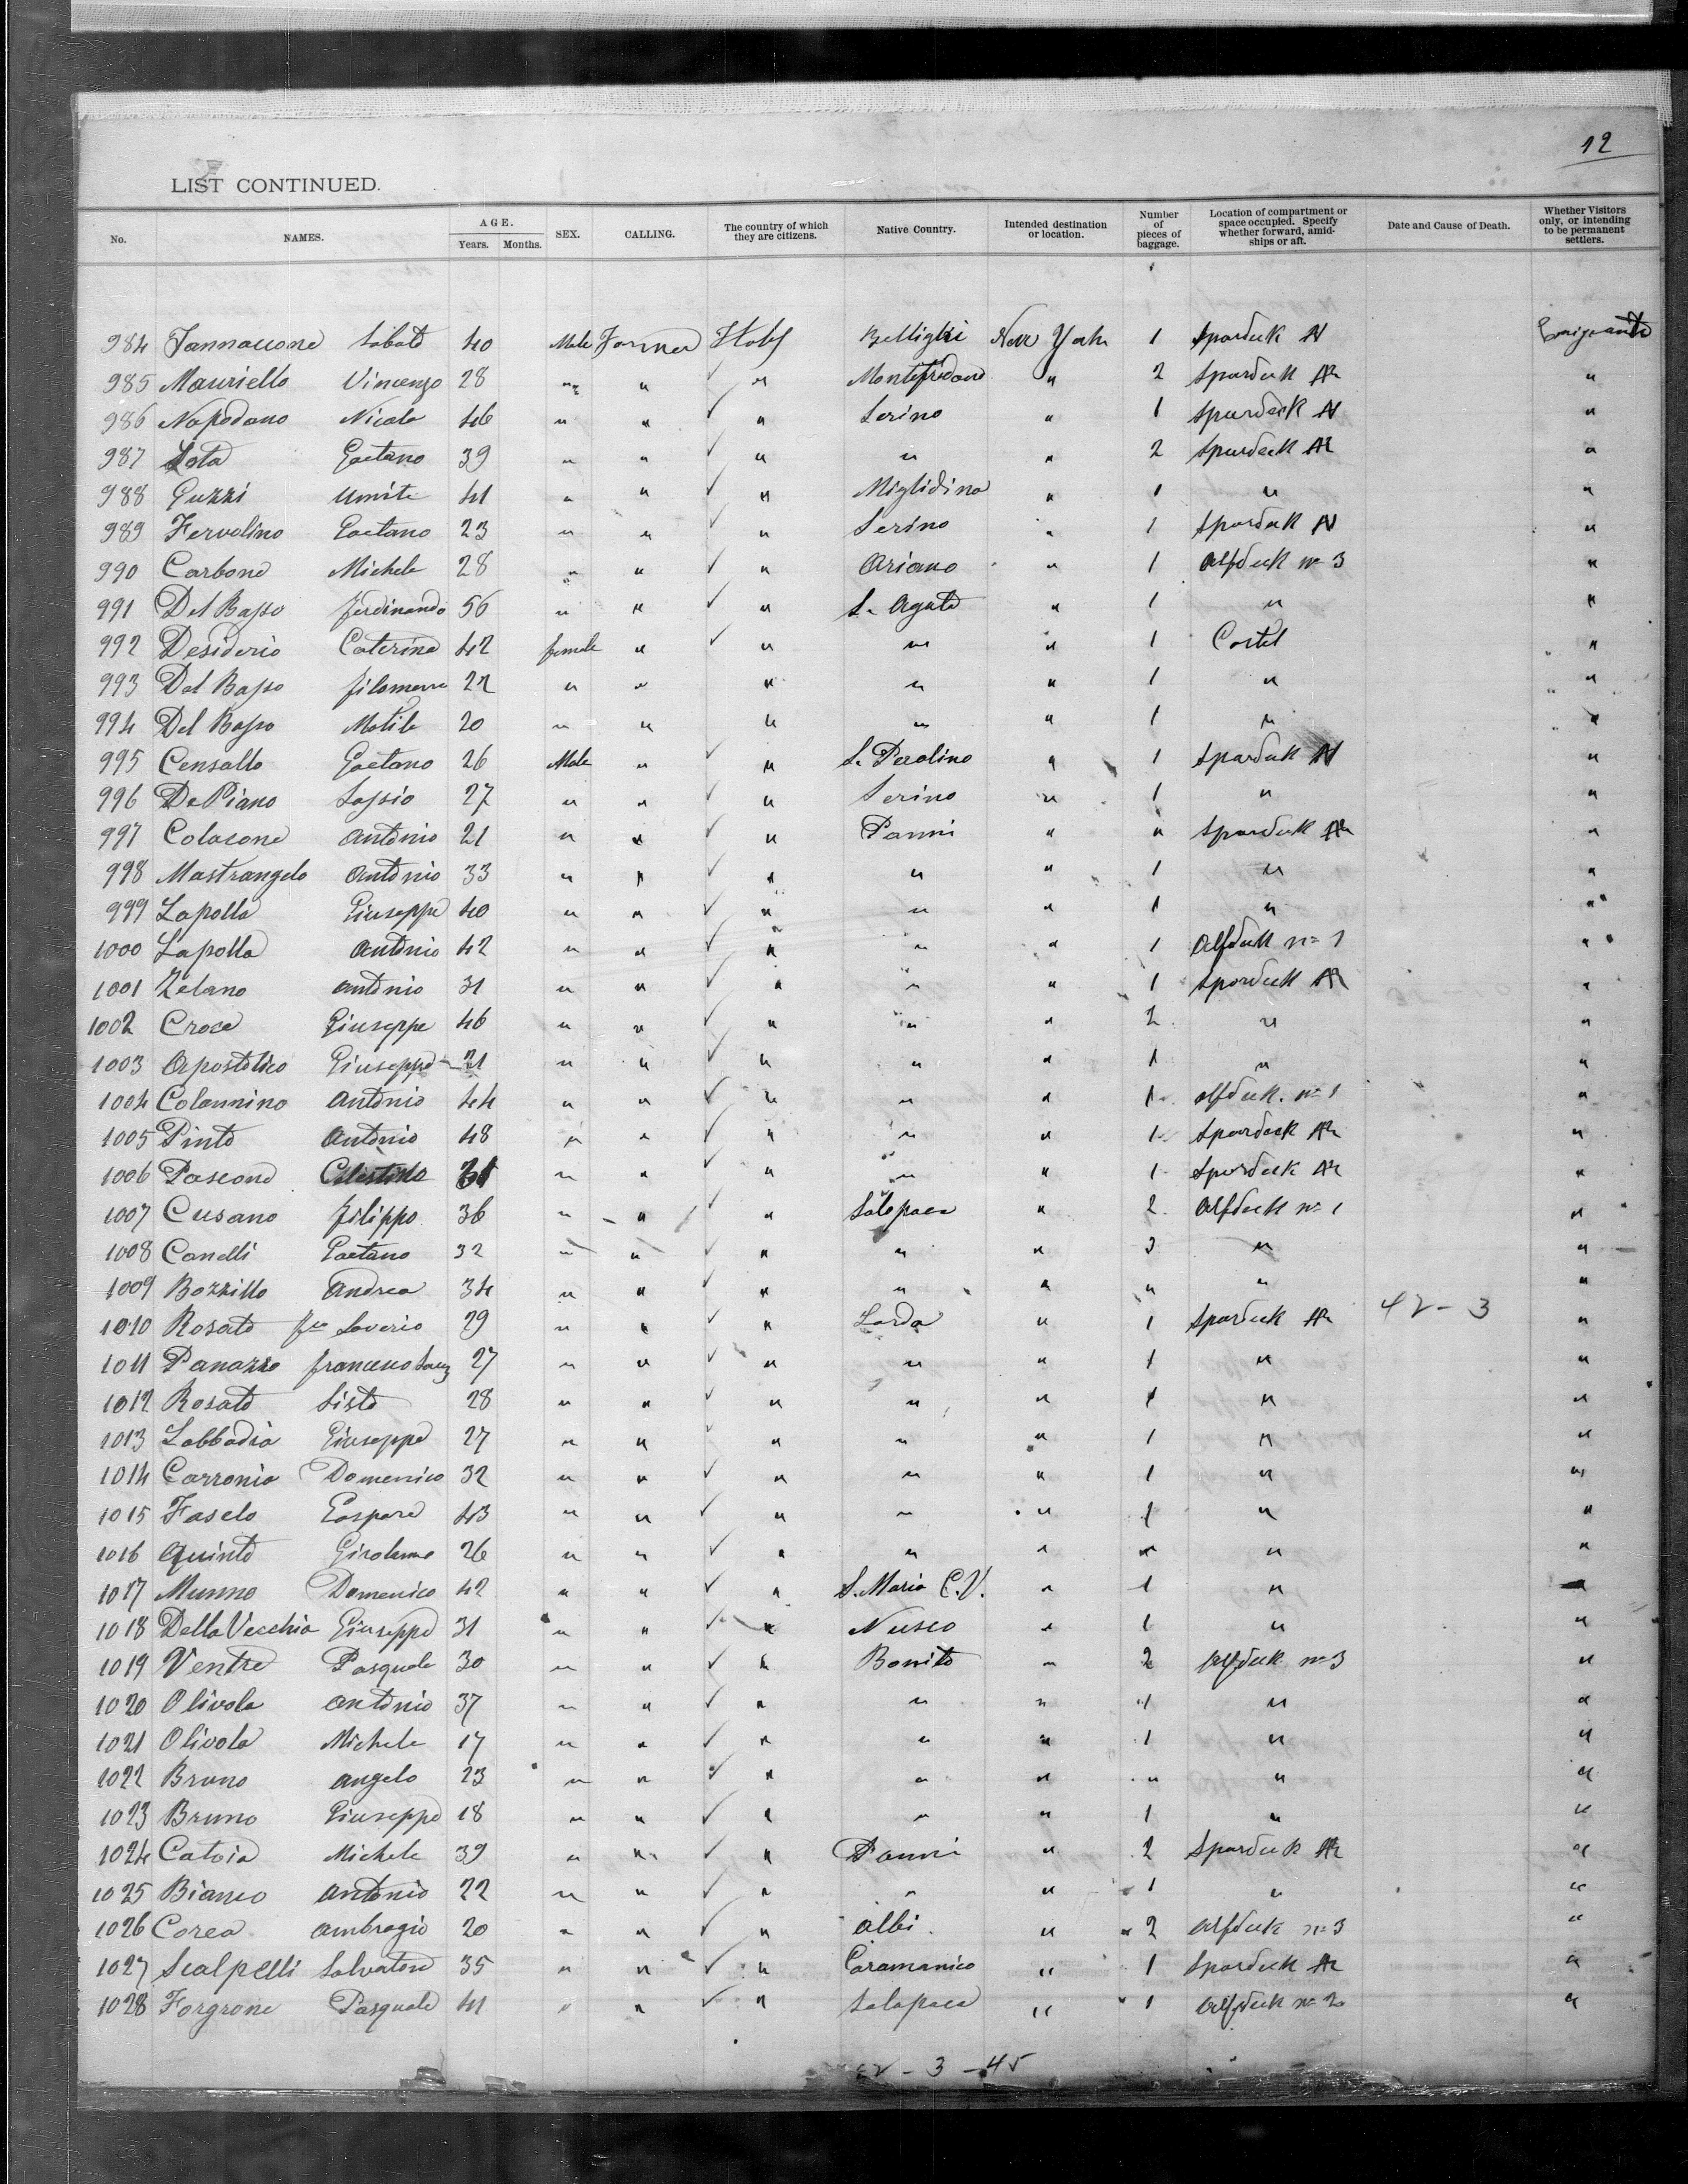 12
LIST CONTINUED.
No. NAMES. AGE. Years. Months. SEX. CALLING. The country of which they are citizens. Native Country. Intended destination or location. Number of pieces of baggage. Location of compartment or space occupied. Specify whether forward, amidships or aft. Date and Cause of Death. Whether Visitors only, or intending to be permanent settlers.
984 Iannaccone Sabato 40 Male Farmer Italy New York 1 Spardeck N
985 Mauriello Vincenzo 28 " " " Montefredane " 2 Spardeck AR "
986 Napodano Nicola 46 " " " Serino " 1 Spardeck N "
987 Lota Gaetano 39 " " " " " 2 Spardeck AR "
988 Guzzi 41 " " " " 1 " "
989 Fervolino Gaetano 23 " " " Serino " 1 Spardeck N "
990 Carbone Michele 28 " " " Ariano " 1 Alfdeck no 3 "
991 Del Basso ferdinando 56 " " " S. Agata " 1 " "
992 Desiderio Caterina 42 female " " " " 1 Castel "
993 Del Basso filomena 22 " " " " " 1 " "
994 Del Basso 20 " " " " " 1 " "
995 Censallo Gaetano 26 Male " " " 1 Spardeck N "
996 De Piano 27 " " " Serino " 1 " "
997 Colasone Antonio 21 " " " Panni " " Spardeck AR "
998 Mastrangelo Antonio 33 " " " " " 1 " "
999 Lapolla Giuseppe 40 " " " " " 1 " "
1000 Lapolla Antonio 42 " " " " " 1 Alfdeck no 1 "
1001 Zelano Antonio 31 " " " " " 1 Spardeck AR "
1002 Croce Giuseppe 46 " " " " " 2 " "
1003 Apostolico Giuseppe 21 " " " " " 1 " "
1004 Colannino Antonio 44 " " " " " 1 Alfdeck. no 1 "
1005 Pinto Antonio 48 " " " " " 1 Spardeck AR "
1006 Pascone Celestino " " " " " 1 Spardeck AR "
1007 Cusano filippo 36 " " " Solopaca " 2 Alfdeck no 1 "
1008 Canelli Gaetano 32 " " " " " 3 " "
1009 Bozzillo Andrea 34 " " " " " " " "
1010 Rosato fco Saverio 29 " " " Larda " 1 Spardeck AR 42 - 3 "
1011 Panazzo francesco 27 " " " " " 1 " "
1012 Rosato Sisto 28 " " " " " 1 " "
1013 Labbadia Giuseppe 27 " " " " " 1 " "
1014 Carronia Domenico 32 " " " " " 1 " "
1015 Faselo Gaspare 43 " " " " " 1 " "
1016 Quinto Girolamo 26 " " " " " " " "
1017 Munno Domenico 42 " " " S. Maria C.V. " 1 " "
1018 Della Vecchia Giuseppe 31 " " " Nusco " 1 " "
1019 Ventre Pasquale 30 " " " Bonito " 2 Alfdeck no 3 "
1020 Olivola Antonio 37 " " " " " 1 " "
1021 Olivola Michele 17 " " " " " 1 " "
1022 Bruno Angelo 23 " " " " " " " "
1023 Bruno Giuseppe 18 " " " " " 1 " "
1024 Catoia Michele 39 " " " Panni " 2 Spardeck AR "
1025 Bianco Antonio 22 " " " " " 1 " "
1026 Corea Ambrogio 20 " " " Albi " 2 Alfdeck no 3 "
1027 Scalpelli Salvatore 35 " " " Caramanico " 1 Spardeck AR "
1028 Forgrone Pasquale 41 " " " Solopaca " 1 Alfdeck no 2 "
42 - 3 - 45